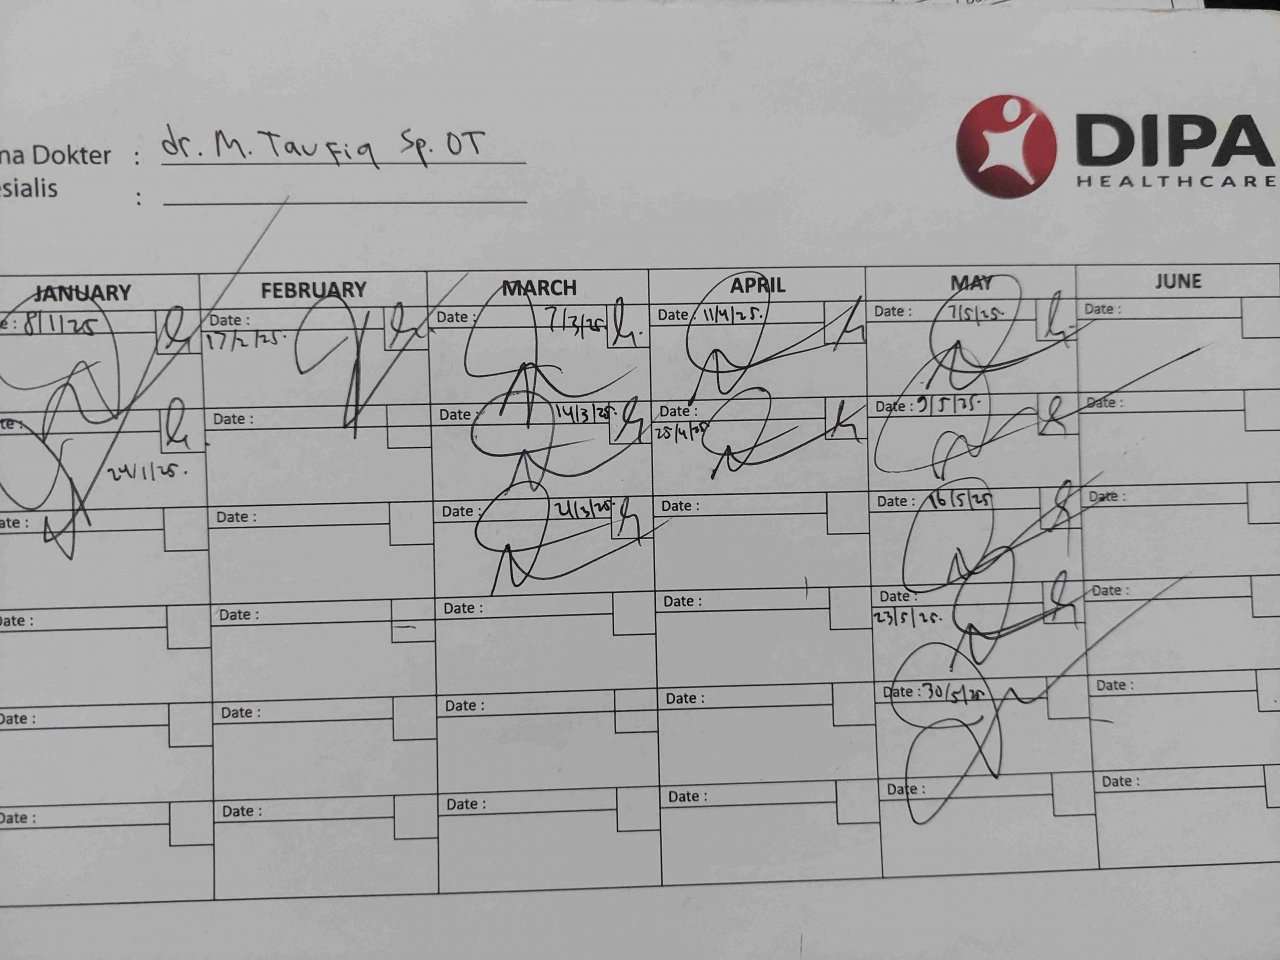 DIPA
HEALTHCARE
na Dokter : dr. M. Taufiq Sp. OT
esialis :
JANUARY FEBRUARY MARCH APRIL MAY JUNE
e : 8/1/25 Date : 17/2/25. Date : 7/3/25. Date : 11/4/25. Date : 7/5/25. Date :
te : 24/1/25. Date : Date : 14/3/25. Date : 25/4/25. Date : 9/5/25. Date :
ate : Date : Date : 21/3/25. Date : Date : 16/5/25 Date :
Date : Date : Date : Date : Date : 23/5/25. Date :
Date : Date : Date : Date : Date : 30/5/25 Date :
Date : Date : Date : Date : Date : Date :